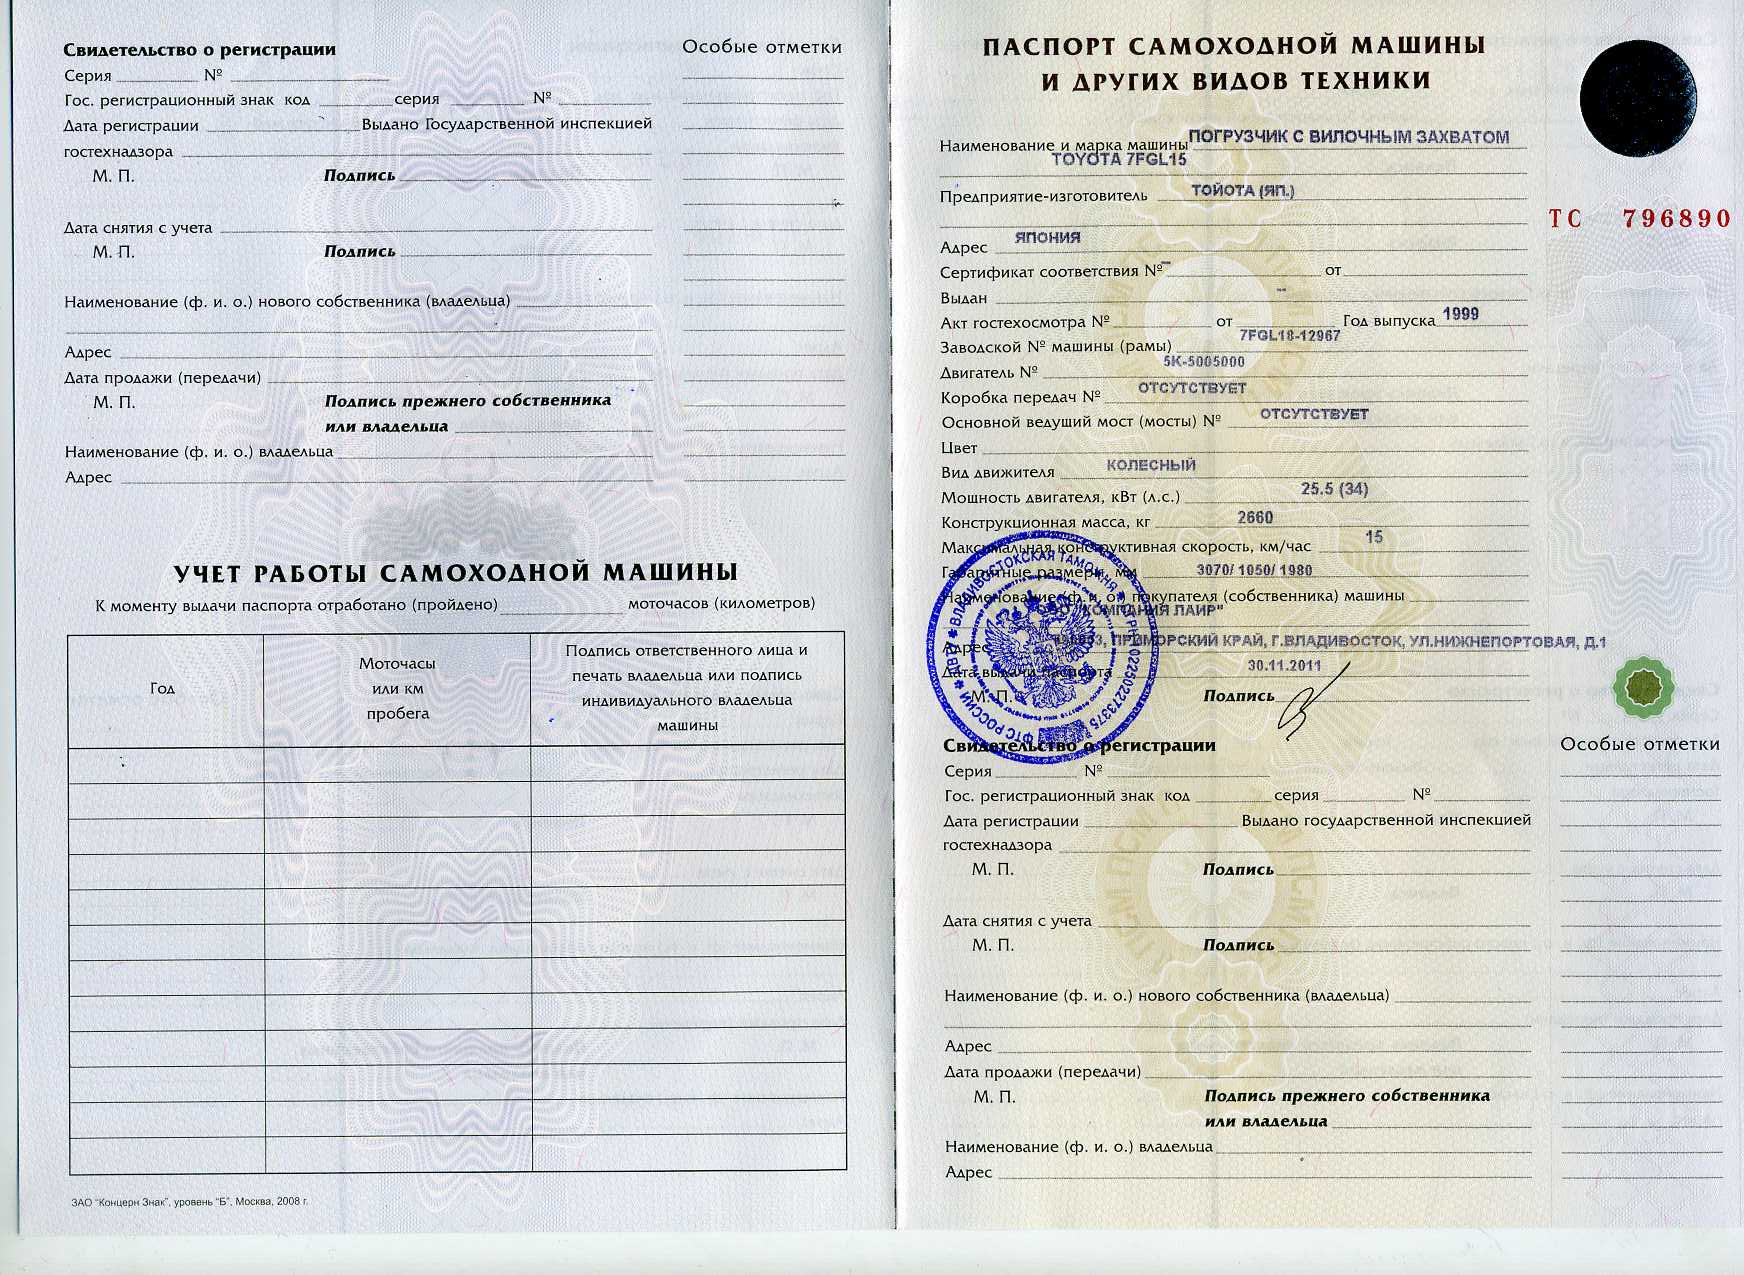 Свидетельство о регистрации
Особые отметки
Серия № 
Гос. регистрационный знак код серия №
Дата регистрации Выдано Государственной инспекцией
гостехнадзора
М. П. Подпись
Дата снятия с учета
М. П. Подпись
Наименование (ф. и. о.) нового собственника (владельца)
Адрес
Дата продажи (передачи)
М. П. Подпись прежнего собственника
или владельца
Наименование (ф. и. о.) владельца
Адрес
УЧЕТ РАБОТЫ САМОХОДНОЙ МАШИНЫ
К моменту выдачи паспорта отработано (пройдено) моточасов (километров)
Год
Моточасы
или км
пробега
Подпись ответственного лица и
печать владельца или подпись
индивидуального владельца
машины
ЗАО "Концерн Знак", уровень "Б", Москва, 2008 г.
ПАСПОРТ САМОХОДНОЙ МАШИНЫ
И ДРУГИХ ВИДОВ ТЕХНИКИ
ТС 796890
Наименование и марка машины ПОГРУЗЧИК С ВИЛОЧНЫМ ЗАХВАТОМ
TOYOTA 7FGL15
Предприятие-изготовитель ТОЙОТА (ЯП.)
Адрес ЯПОНИЯ
Сертификат соответствия № – от
Выдан –
Акт гостехосмотра № от Год выпуска 1999
Заводской № машины (рамы) 7FGL18-12967
Двигатель № 5K-5005000
Коробка передач № ОТСУТСТВУЕТ
Основной ведущий мост (мосты) № ОТСУТСТВУЕТ
Цвет
Вид движителя КОЛЕСНЫЙ
Мощность двигателя, кВт (л.с.) 25.5 (34)
Конструкционная масса, кг 2660
Максимальная конструктивная скорость, км/час 15
Габаритные размеры, мм 3070/ 1050/ 1980
Наименование (ф. и. о.) покупателя (собственника) машины
"КОМПАНИЯ ЛАИР"
Адрес ПРИМОРСКИЙ КРАЙ, Г.ВЛАДИВОСТОК, УЛ.НИЖНЕПОРТОВАЯ, Д.1
Дата выдачи паспорта 30.11.2011
М. П. Подпись
ФТС РОССИИ ВЛАДИВОСТОКСКАЯ ТАМОЖНЯ
Свидетельство о регистрации
Особые отметки
Серия №
Гос. регистрационный знак код серия №
Дата регистрации Выдано государственной инспекцией
гостехнадзора
М. П. Подпись
Дата снятия с учета
М. П. Подпись
Наименование (ф. и. о.) нового собственника (владельца)
Адрес
Дата продажи (передачи)
М. П. Подпись прежнего собственника
или владельца
Наименование (ф. и. о.) владельца
Адрес